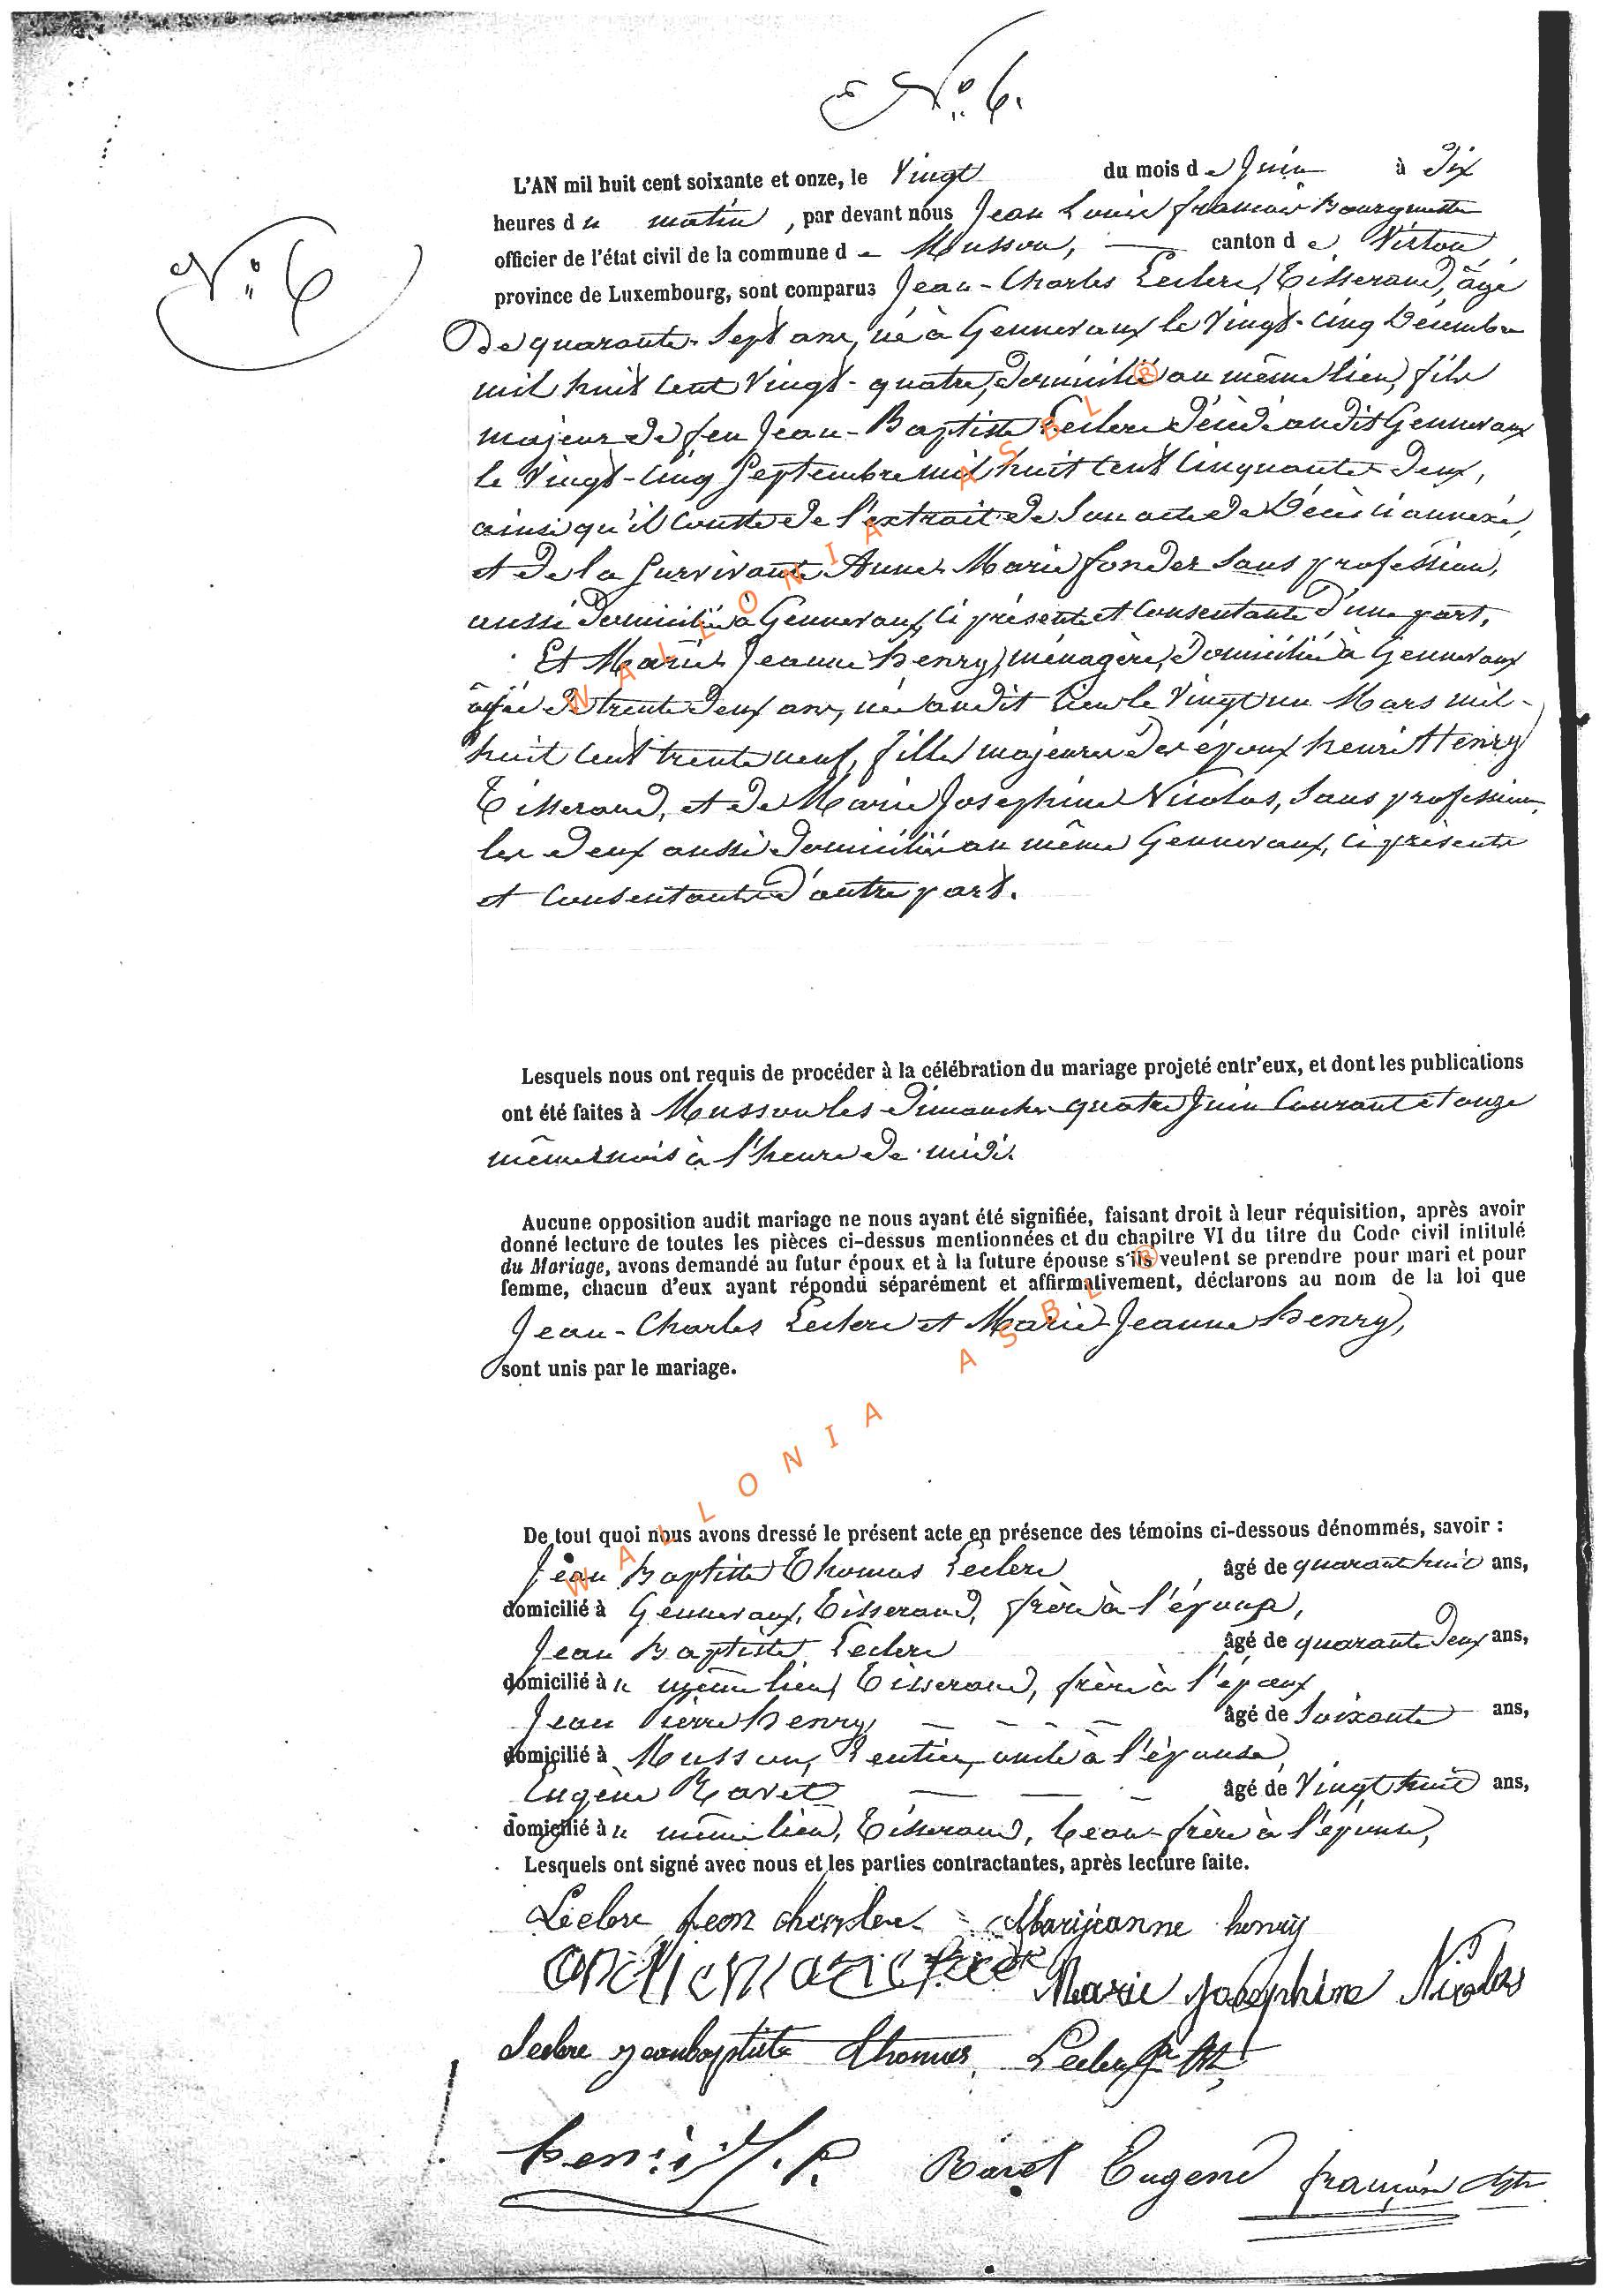 N° 6.
N° 6
L'AN mil huit cent soixante et onze, le Vingt du mois de Juin à Dix
heures du matin, par devant nous Jean Louis François
officier de l'état civil de la commune de Musson, canton de Virton,
province de Luxembourg, sont comparus Jean-Charles Leclere, Tisserand, âgé
de quarante-Sept ans, né à Gennevaux le Vingt-Cinq Décembre
mil huit Cent Vingt-quatre, domicilié au même lieu, fils
majeur de feu Jean-Baptiste Leclere décédé audit Gennevaux
le Vingt-Cinq Septembre mil huit Cent Cinquante-deux,
ainsi qu'il Conste de l'extrait de Son acte de Décès ci annexé,
et de la Survivante Anne-Marie fonder Sans profession,
aussi domiciliée à Gennevaux, Ci présente et Consentante d'une part.
Et Marie-Jeanne henry, ménagère, domiciliée à Gennevaux
âgée de trente deux ans, née audit lieu le Vingt un Mars mil-
huit Cent trente neuf, fille majeure des époux henri Henry
Tisserand, et de Marie Josephine Nicolas, Sans profession,
les deux aussi domiciliés au même Gennevaux, Ci présente
et Consentante d'autre part.
Lesquels nous ont requis de procéder à la célébration du mariage projeté entr'eux, et dont les publications
ont été faites à Musson les dimanches quatre Juin Courant et onze
même mois à l'heure de midi.
Aucune opposition audit mariage ne nous ayant été signifiée, faisant droit à leur réquisition, après avoir
donné lecture de toutes les pièces ci-dessus mentionnées et du chapitre VI du titre du Code civil intitulé
du Mariage, avons demandé au futur époux et à la future épouse s'ils veulent se prendre pour mari et pour
femme, chacun d'eux ayant répondu séparément et affirmativement, déclarons au nom de la loi que
Jean-Charles Leclere et Marie-Jeanne henry,
sont unis par le mariage.
De tout quoi nous avons dressé le présent acte en présence des témoins ci-dessous dénommés, savoir :
Jean Baptiste Thomas Leclere, âgé de quarante huit ans,
domicilié à Gennevaux, Tisserand, frère à l'époux,
Jean Baptiste Leclere âgé de quarante deux ans,
domicilié au même lieu, Tisserand, frère à l'époux
Jean Pierre henry âgé de Soixante ans,
domicilié à Musson, Rentier, oncle à l'épouse,
Eugène Ravet âgé de Vingt huit ans,
domicilié au même lieu, Tisserand, beau-frère à l'épouse,
Lesquels ont signé avec nous et les parties contractantes, après lecture faite.
Leclere Jean charles Marijeanne henry
Marie Josephine Nicolas
Leclere jeanbaptiste thomas Leclere
henri J. P. Ravet Eugene françois
WALLONIA ASBL ®
WALLONIA ASBL ®